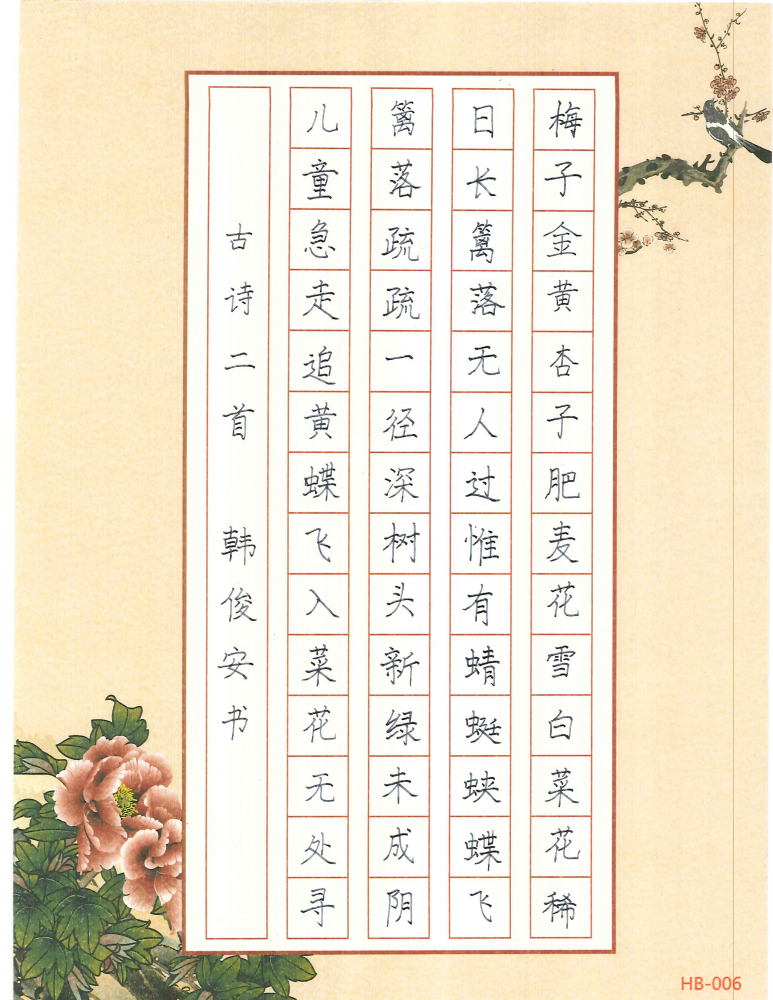 梅子金黄杏子肥麦花雪白菜花稀
日长篱落无人过惟有蜻蜓蛱蝶飞
篱落疏疏一径深树头新绿未成阴
儿童急走追黄蝶飞入菜花无处寻
古诗二首 韩俊安书
HB-006